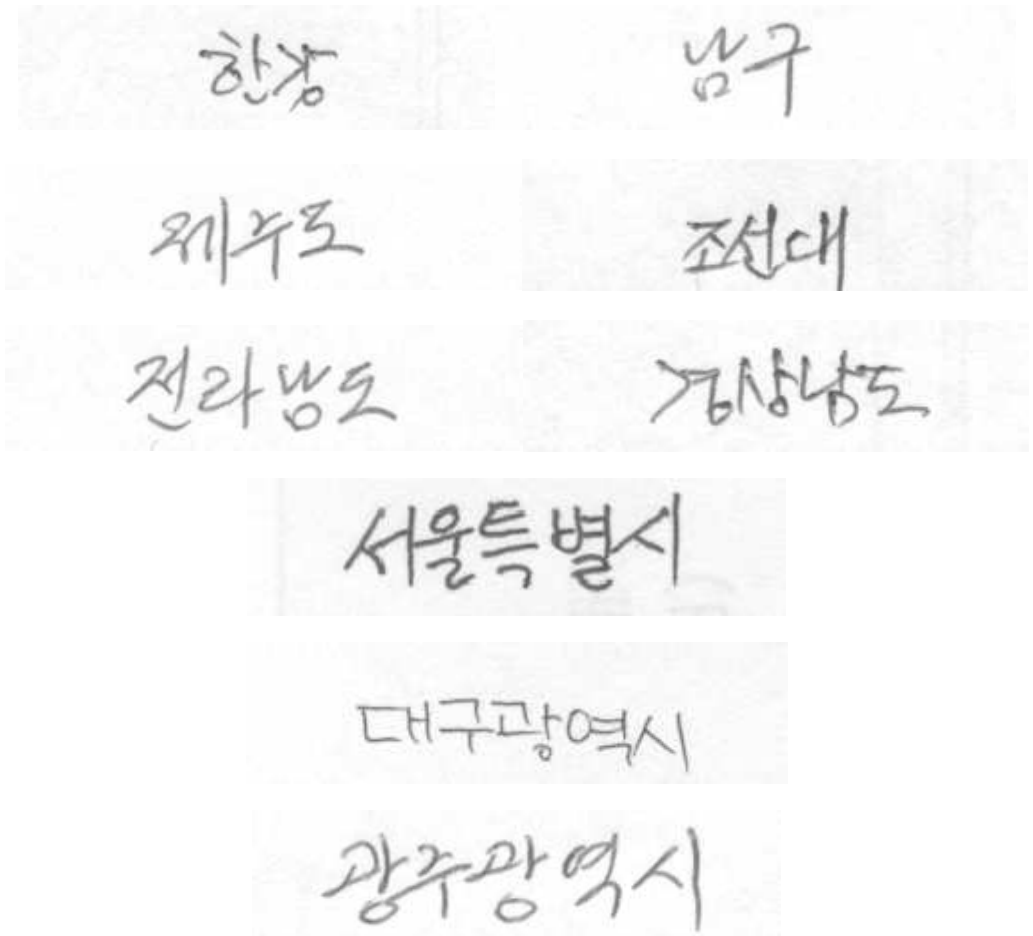 한강 남구
제주도 조선대
전라남도 경상남도
서울특별시
대구광역시
광주광역시